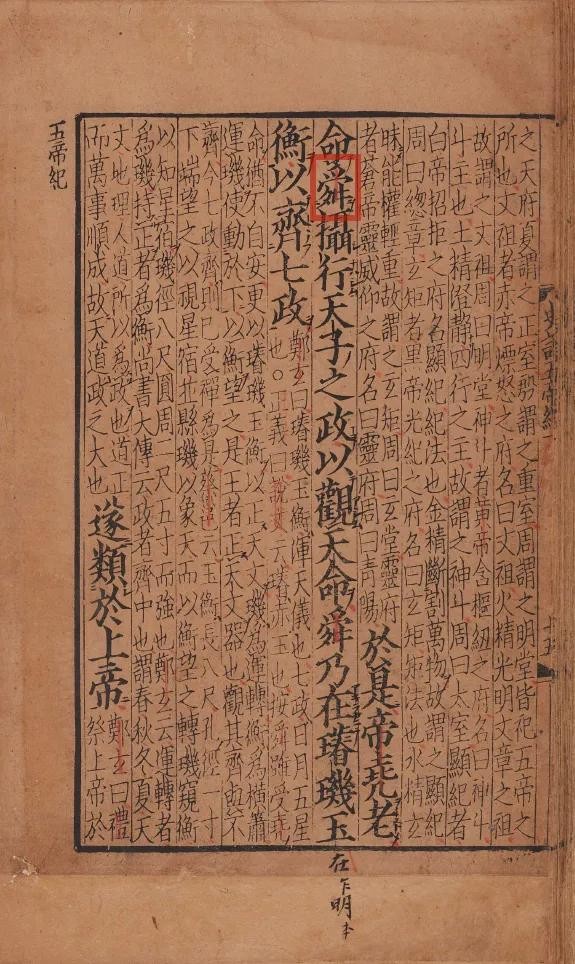 史記五帝紀一
十五
之天府夏謂之正室殷謂之重室周謂之明堂皆祀五帝之
所也文祖者赤帝熛怒之府名曰文祖火精光明文章之祖
故謂之文祖周曰明堂神斗者黄帝含樞紐之府名曰神斗
斗主也土精澄静四行之主故謂之神斗周曰太室顯紀者
白帝招拒之府名顯紀紀法也金精斷割萬物故謂之顯紀
周曰總章玄矩者黑帝光紀之府名曰玄矩矩法也水精玄
昧能權輕重故謂之玄矩周曰玄堂靈府
者蒼帝靈威仰之府名曰靈府周曰青陽
於是帝堯老
命舜攝行天子之政以觀天命舜乃在璿璣玉
衡以齊七政
鄭玄曰璿璣玉衡渾天儀也七政日月五星
也○正義曰說文云璿赤玉也按舜雖受堯
命猶不自安更以璿璣玉衡以正天文璣爲運轉衡爲橫簫
運璣使動於下以衡望之是王者正天文器也觀其齊與不
齊今七政齊則已受禪爲是蔡邕云玉衡長八尺孔徑一寸
下端望之以視星宿並縣璣以象天而以衡望之轉璣窺衡
以知星宿璣徑八尺圓周二尺五寸而強也鄭玄云運轉者
爲璣持正者爲衡尚書大傳云政者齊中也謂春秋冬夏天
文地理人道所以爲政也道正
而萬事順成故天道政之大也
遂類於上帝
鄭玄曰禮
祭上帝於
五帝紀
在乍明本